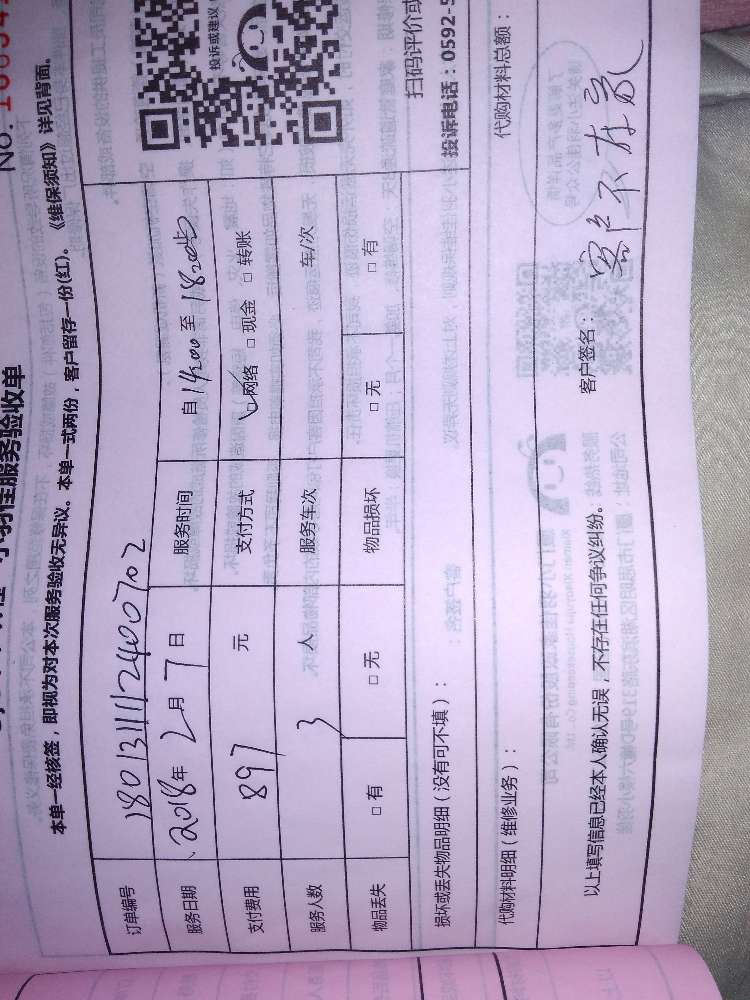 No. 1
小羽佳服务验收单
本单一经核签，即视为对本次服务验收无异议。本单一式两份，客户留存一份(红)。《维保须知》详见背面。
订单编号 1801311112400702
服务日期 2018年 2月 7日 服务时间 自 14:00 至 18:00
支付费用 897 元 支付方式 ☑网络 □ 现金 □ 转账
服务人数 3 人 服务车次 车/次
物品丢失 □ 有 □ 无 物品损坏 □ 无 □ 有
投诉或建议
扫码评价或
投诉电话：0592-5
损坏或丢失物品明细（没有可不填）：
代购材料明细（维修业务）： 代购材料总额：
以上填写信息已经本人确认无误，不存在任何争议纠纷。 客户签名： 客户不在家